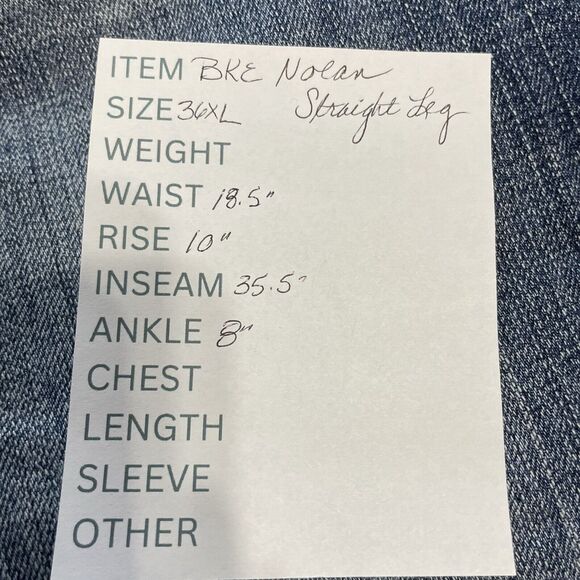 ITEM BKE Nolan
SIZE 36XL Straight Leg
WEIGHT
WAIST 18.5"
RISE 10"
INSEAM 35.5"
ANKLE 8"
CHEST
LENGTH
SLEEVE
OTHER